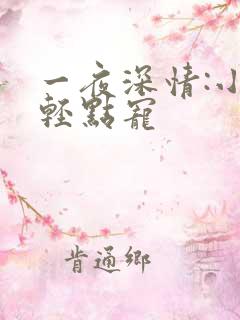 一夜深情:小
輕點寵
肯通鄉